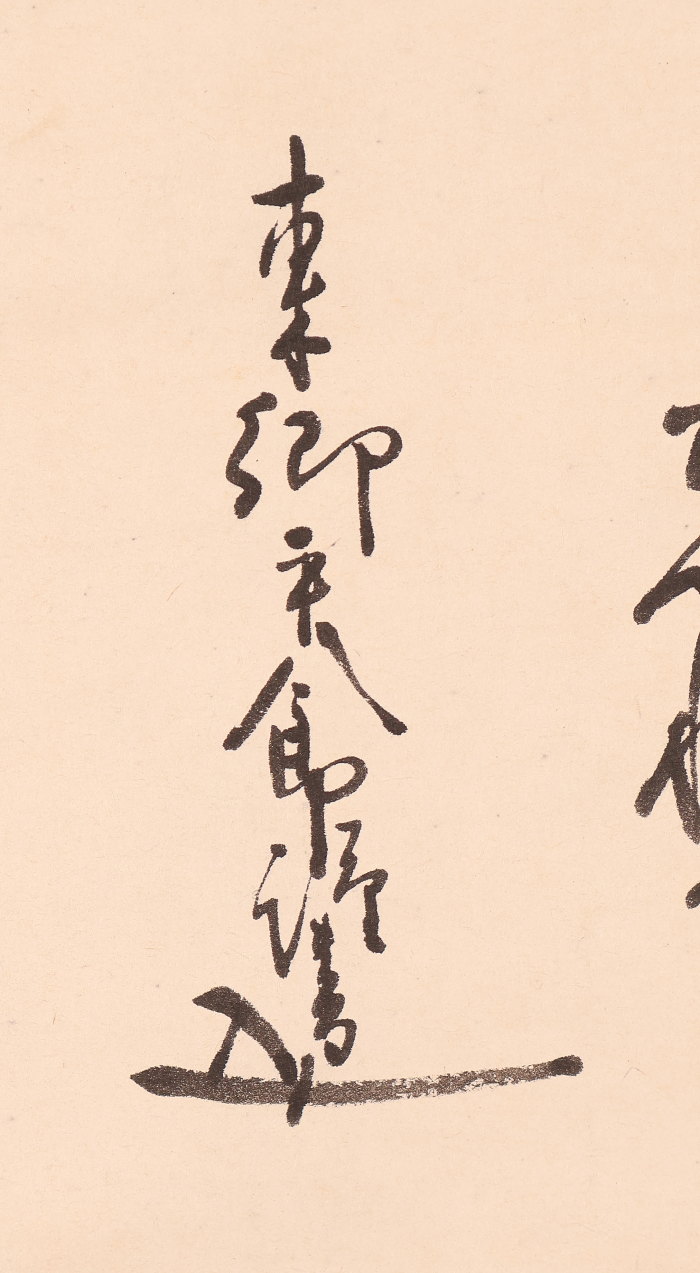 東郷平八郎謹書